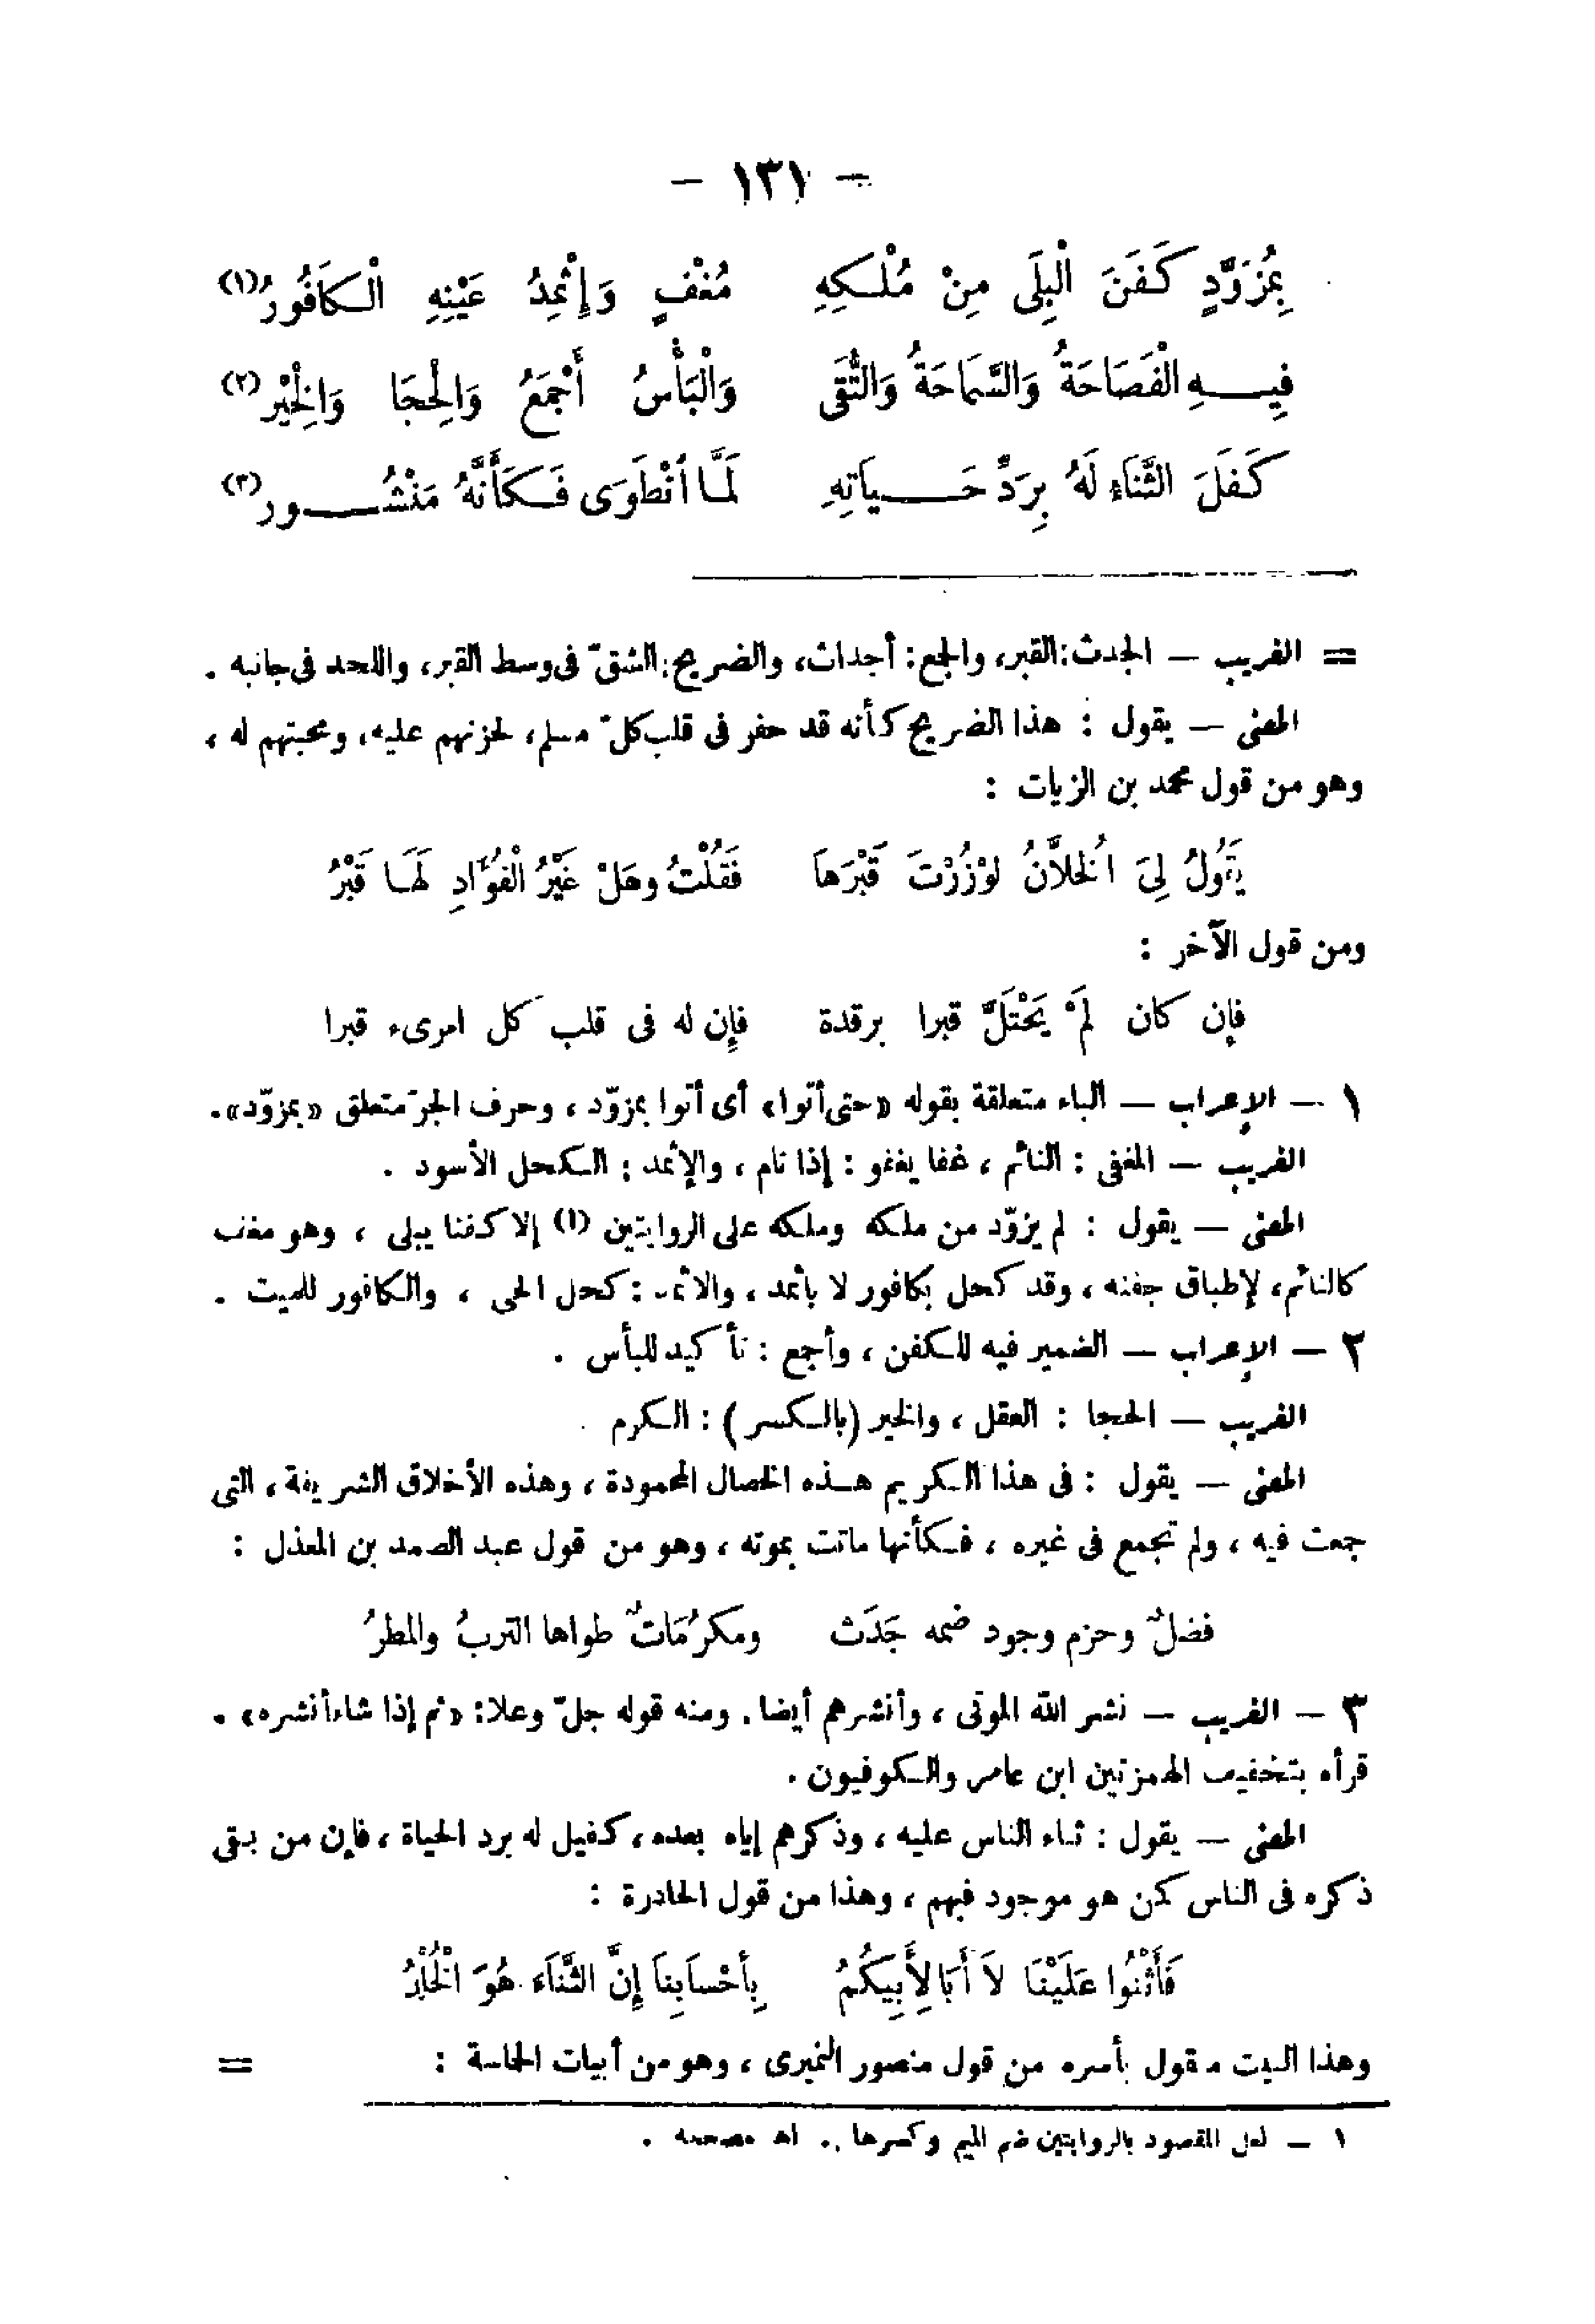 - ١٣١ -
بِمُزَوَّدٍ كَفَنَ الْبِلَى مِنْ مُلْكِهِ مُغْفٍ وَإِثْمِدُ عَيْنِهِ الْكَافُورُ (١)
فِيهِ الْفَصَاحَةُ وَالسَّمَاحَةُ وَالتُّقَى وَالْبَأْسُ أَجْمَعُ وَالْحِجَا وَالْخِيْرُ (٢)
كَفَلَ الثَّنَاءُ لَهُ بِرَدِّ حَيَاتِهِ لَمَّا انْطَوَى فَكَأَنَّهُ مَنْشُور (٣)
= الغريب — الجدث: القبر، والجمع: أجداث، والضريح: الشقّ فى وسط القبر، واللحد فى جانبه .
المعنى — يقول : هذا الضريح كأنه قد حفر فى قلب كلّ مسلم، لحزنهم عليه، ومحبتهم له ،
وهو من قول محمد بن الزيات :
يَقُولُ لِىَ الْخلاَّنُ لوْ زُرْتَ قَبْرَهَا فَقُلْتُ وهَلْ غَيْرُ الْفُؤَادِ لَهَا قَبْرُ
ومن قول الآخر :
فإن كان لَمْ يَحْتَلَّ قبرا برقدة فإن له فى قلب كل امرىء قبرا
١ — الإعراب — الباء متعلقة بقوله «حتى أتوا» أى أتوا بمزوّد ، وحرف الجرّ متعلق «بمزوّد».
الغريب — المغفى : النائم ، غفا يغفو : إذا نام ، والإثمد : الكحل الأسود .
المعنى — يقول : لم يزوّد من ملكه وملكه على الروايتين (١) إلا كفنا يبلى ، وهو مغف
كالنائم، لإطباق جفنه ، وقد كحل بكافور لا بأثمد ، والاثمد : كحل الحى ، والكافور للميت .
٢ — الإعراب — الضمير فيه للكفن ، وأجمع : تأكيد للبأس .
الغريب — الحجا : العقل ، والخير (بالكسر) : الكرم .
المعنى — يقول : فى هذا الكريم هذه الخصال المحمودة ، وهذه الأخلاق الشريفة ، التى
جمعت فيه ، ولم تجمع فى غيره ، فكأنها ماتت بموته ، وهو من قول عبد الصمد بن المعذل :
فضلٌ وحزم وجود ضمه جَدَث ومكرُمَاتٌ طواها التربُ والمطرُ
٣ — الغريب — نشر الله الموتى ، وأنشرهم أيضا . ومنه قوله جلّ وعلا: «ثم إذا شاء أنشره» .
قرأه بتخفيف الهمزتين ابن عامر والكوفيون .
المعنى — يقول : ثناء الناس عليه ، وذكرهم إياه بعده ، كفيل له برد الحياة ، فإن من بقى
ذكره فى الناس كمن هو موجود فيهم ، وهذا من قول الحادرة :
فَأَثْنُوا عَلَيْنَا لاَ أَبَا لِأَبِيكُمُ بِأحْسَابِنَا إِنَّ الثَّنَاءَ هُوَ الْخُلْدُ
وهذا البيت منقول بأسره من قول منصور النميرى ، وهو من أبيات الحماسة : =
١ — لعل المقصود بالروايتين ضم الميم وكسرها .. اه مصححه .